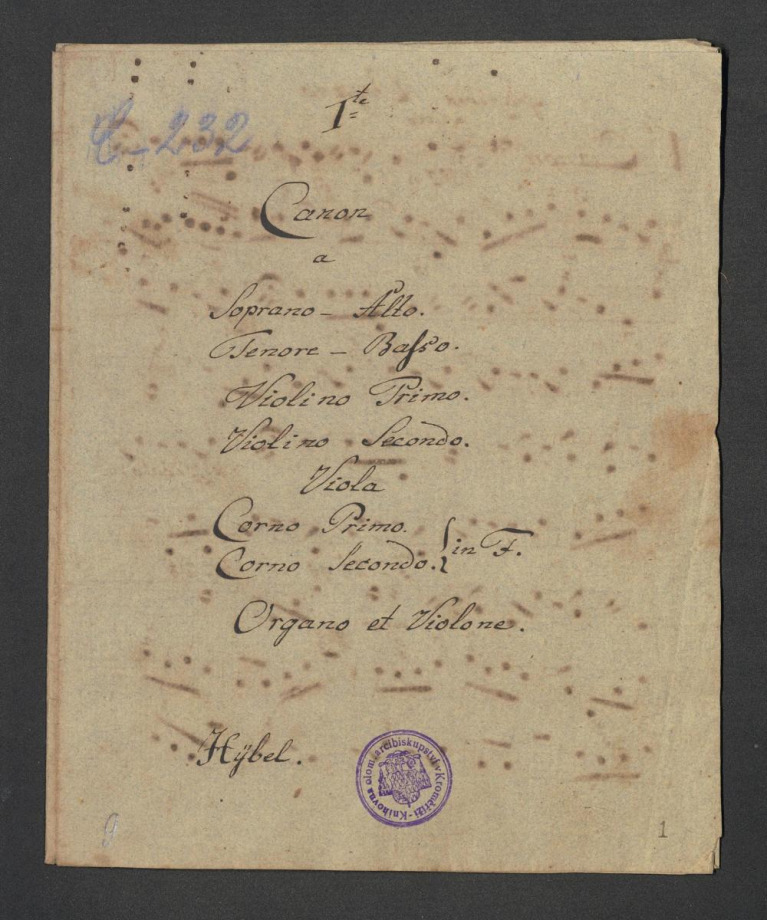 1te
C-232
Canon
a
Soprano – Alto.
Tenore – Basso.
Violino Primo.
Violino Secondo.
Viola
Corno Primo.
Corno Secondo. } in F.
Organo et Violone.
Hÿbel.
Knihovna olom. arcibiskupství v Kroměříži -
9
1